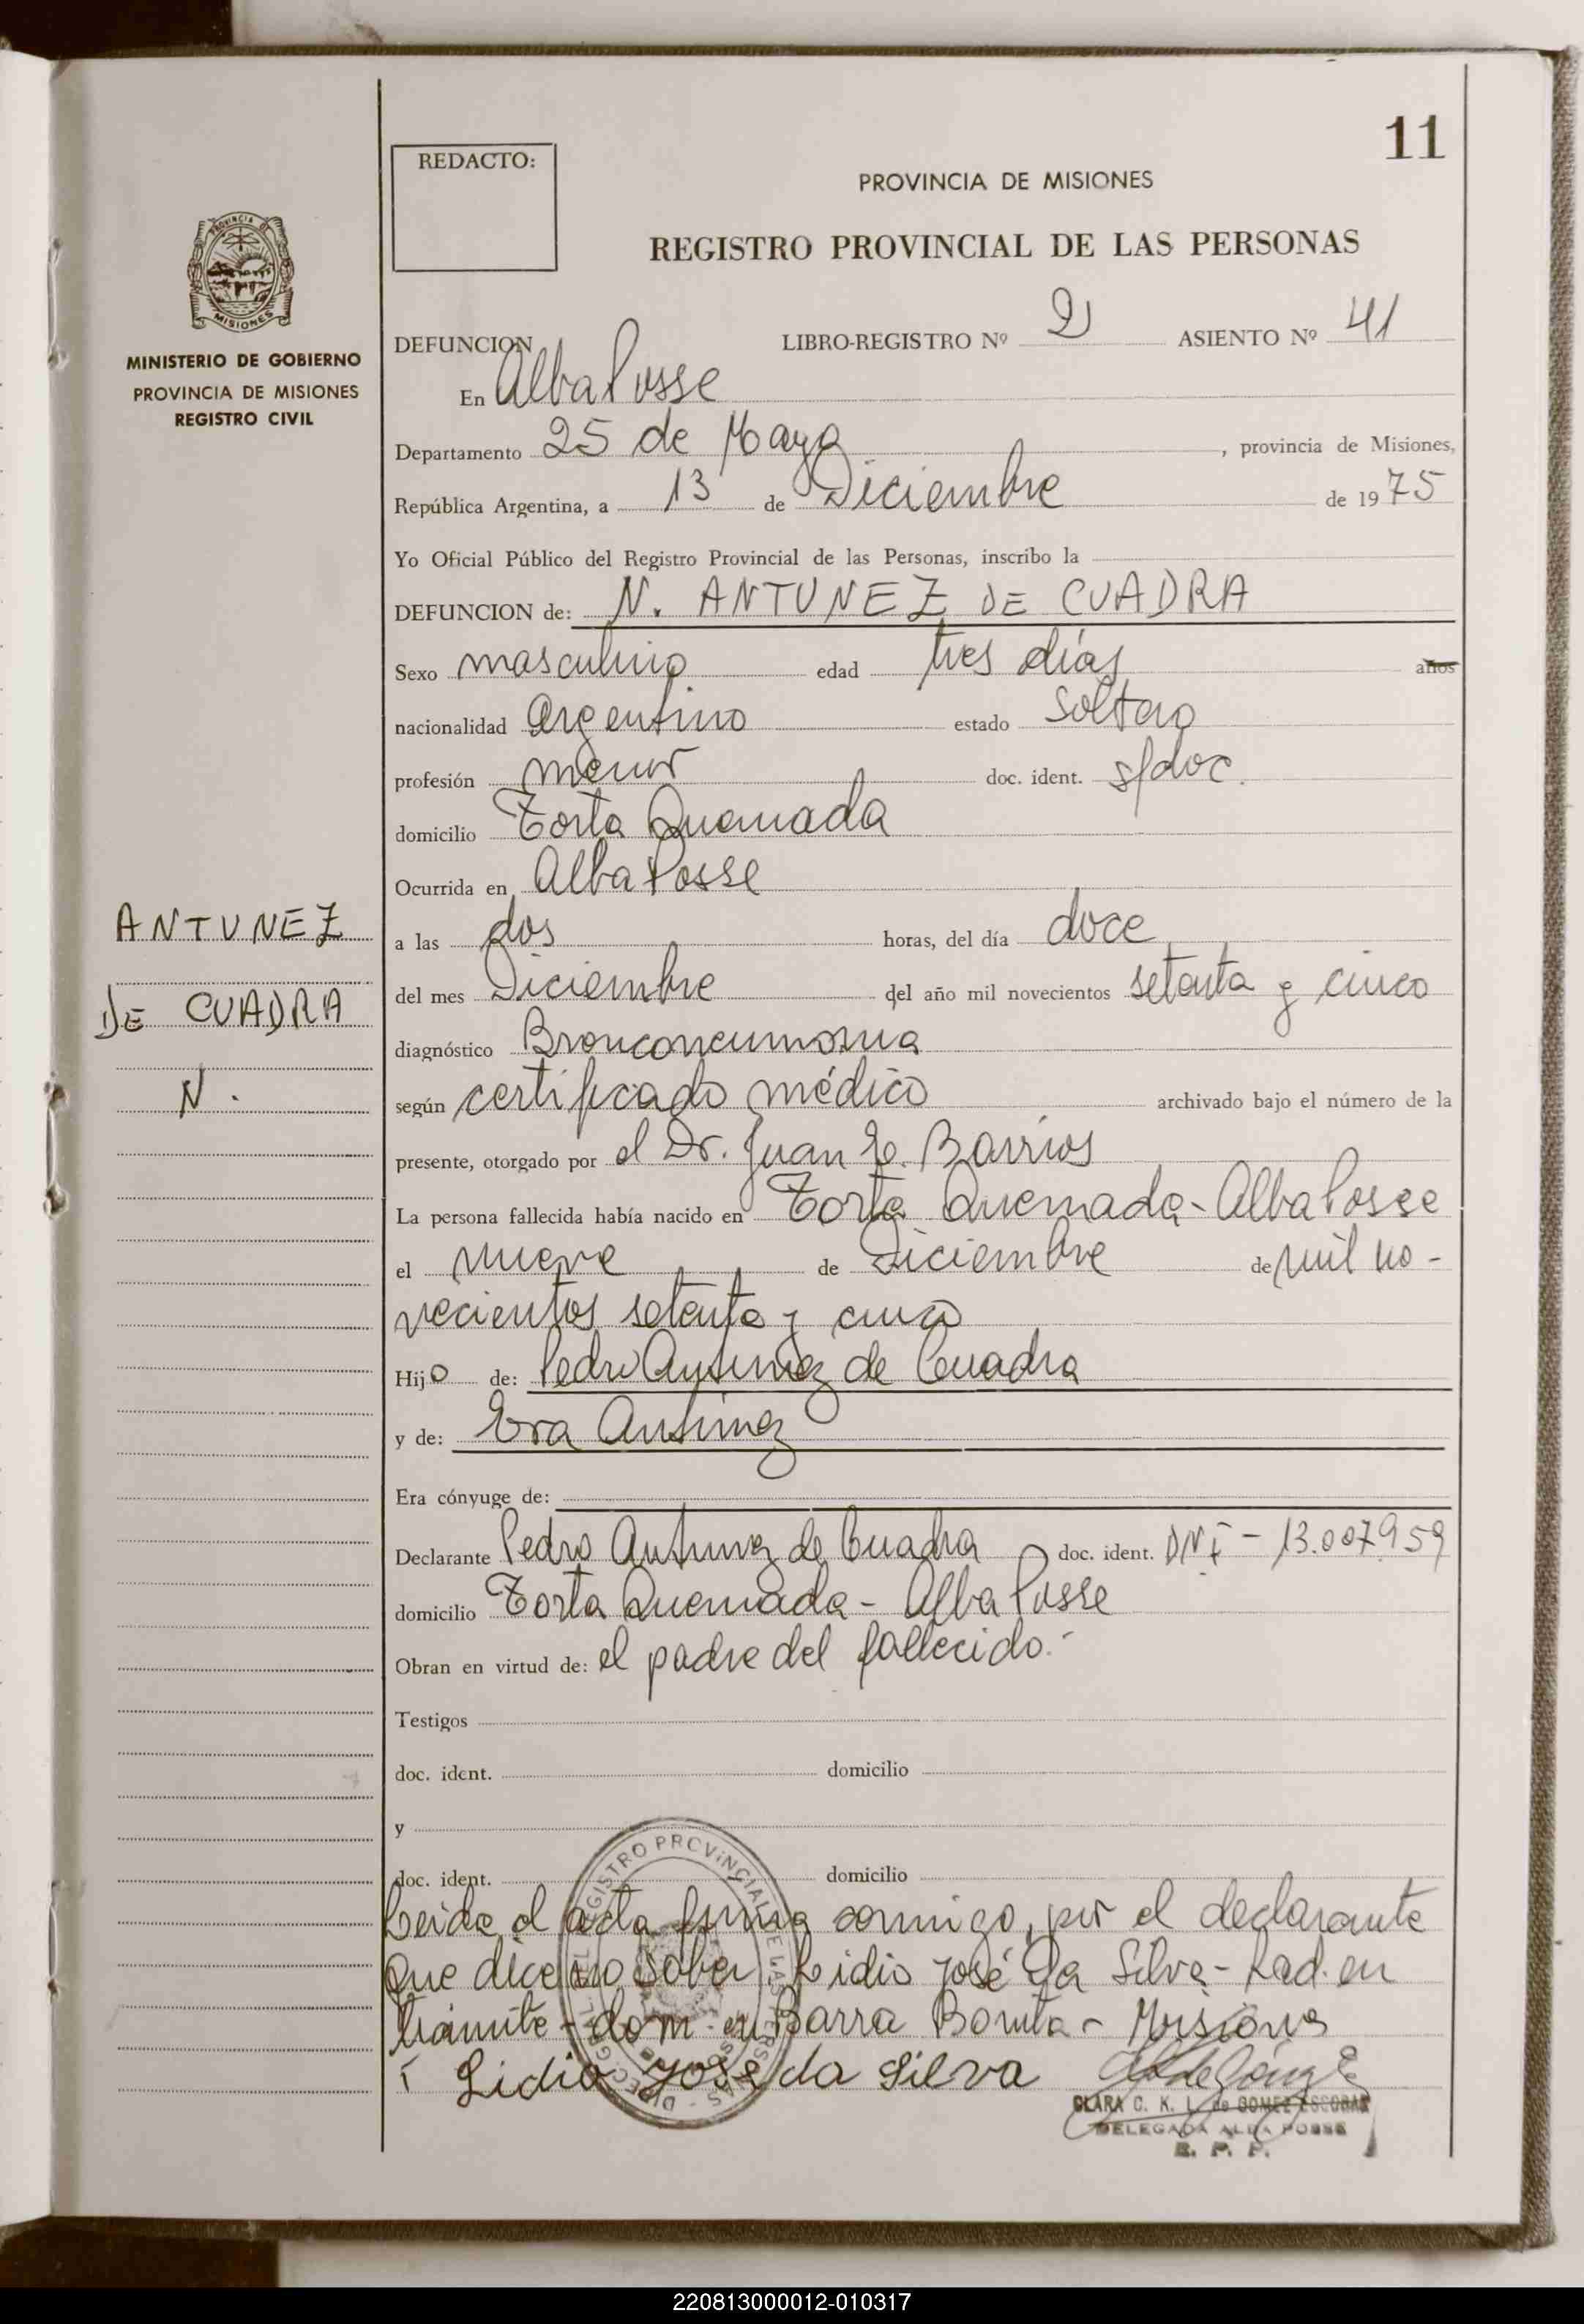 11
REDACTO:
PROVINCIA DE MISIONES
REGISTRO PROVINCIAL DE LAS PERSONAS
PROVINCIA DE
MISIONES
MINISTERIO DE GOBIERNO
PROVINCIA DE MISIONES
REGISTRO CIVIL
DEFUNCION LIBRO-REGISTRO Nº 2 ASIENTO Nº 41
En Alba Posse
Departamento 25 de Mayo, provincia de Misiones,
República Argentina, a 13 de Diciembre de 1975
Yo Oficial Público del Registro Provincial de las Personas, inscribo la
DEFUNCION de: N. ANTUNEZ DE CUADRA
Sexo masculino edad tres días años
nacionalidad argentino estado soltero
profesión menor doc. ident. s/doc.
domicilio Torta Quemada
Ocurrida en Alba Posse
ANTUNEZ
DE CUADRA
N.
a las dos horas, del día doce
del mes Diciembre del año mil novecientos setenta y cinco
diagnóstico Bronconeumonia
según certificado médico archivado bajo el número de la
presente, otorgado por el Dr. Juan E. Barrios
La persona fallecida había nacido en Torta Quemada - Alba Posse
el nueve de Diciembre de mil no-
vecientos setenta y cinco
Hijo de: Pedro Antunez de Cuadra
y de: Eva Antunez
Era cónyuge de:
Declarante Pedro Antunez de Cuadra doc. ident. DNI - 13.007.959
domicilio Torta Quemada - Alba Posse
Obran en virtud de: el padre del fallecido.-
Testigos
doc. ident. domicilio
y
doc. ident. domicilio
Leida el acta firma conmigo, por el declarante
que dice no saber, Lidio José da Silva - Rad. en
trámite - dom. en Barra Bonita - Misiones
Lidio José da Silva
CLARA C. K. L. de GOMEZ ESCOBAR
DELEGADA ALBA POSSE
R. P. P.
REGISTRO PROVINCIAL DE LAS PERSONAS
220813000012-010317